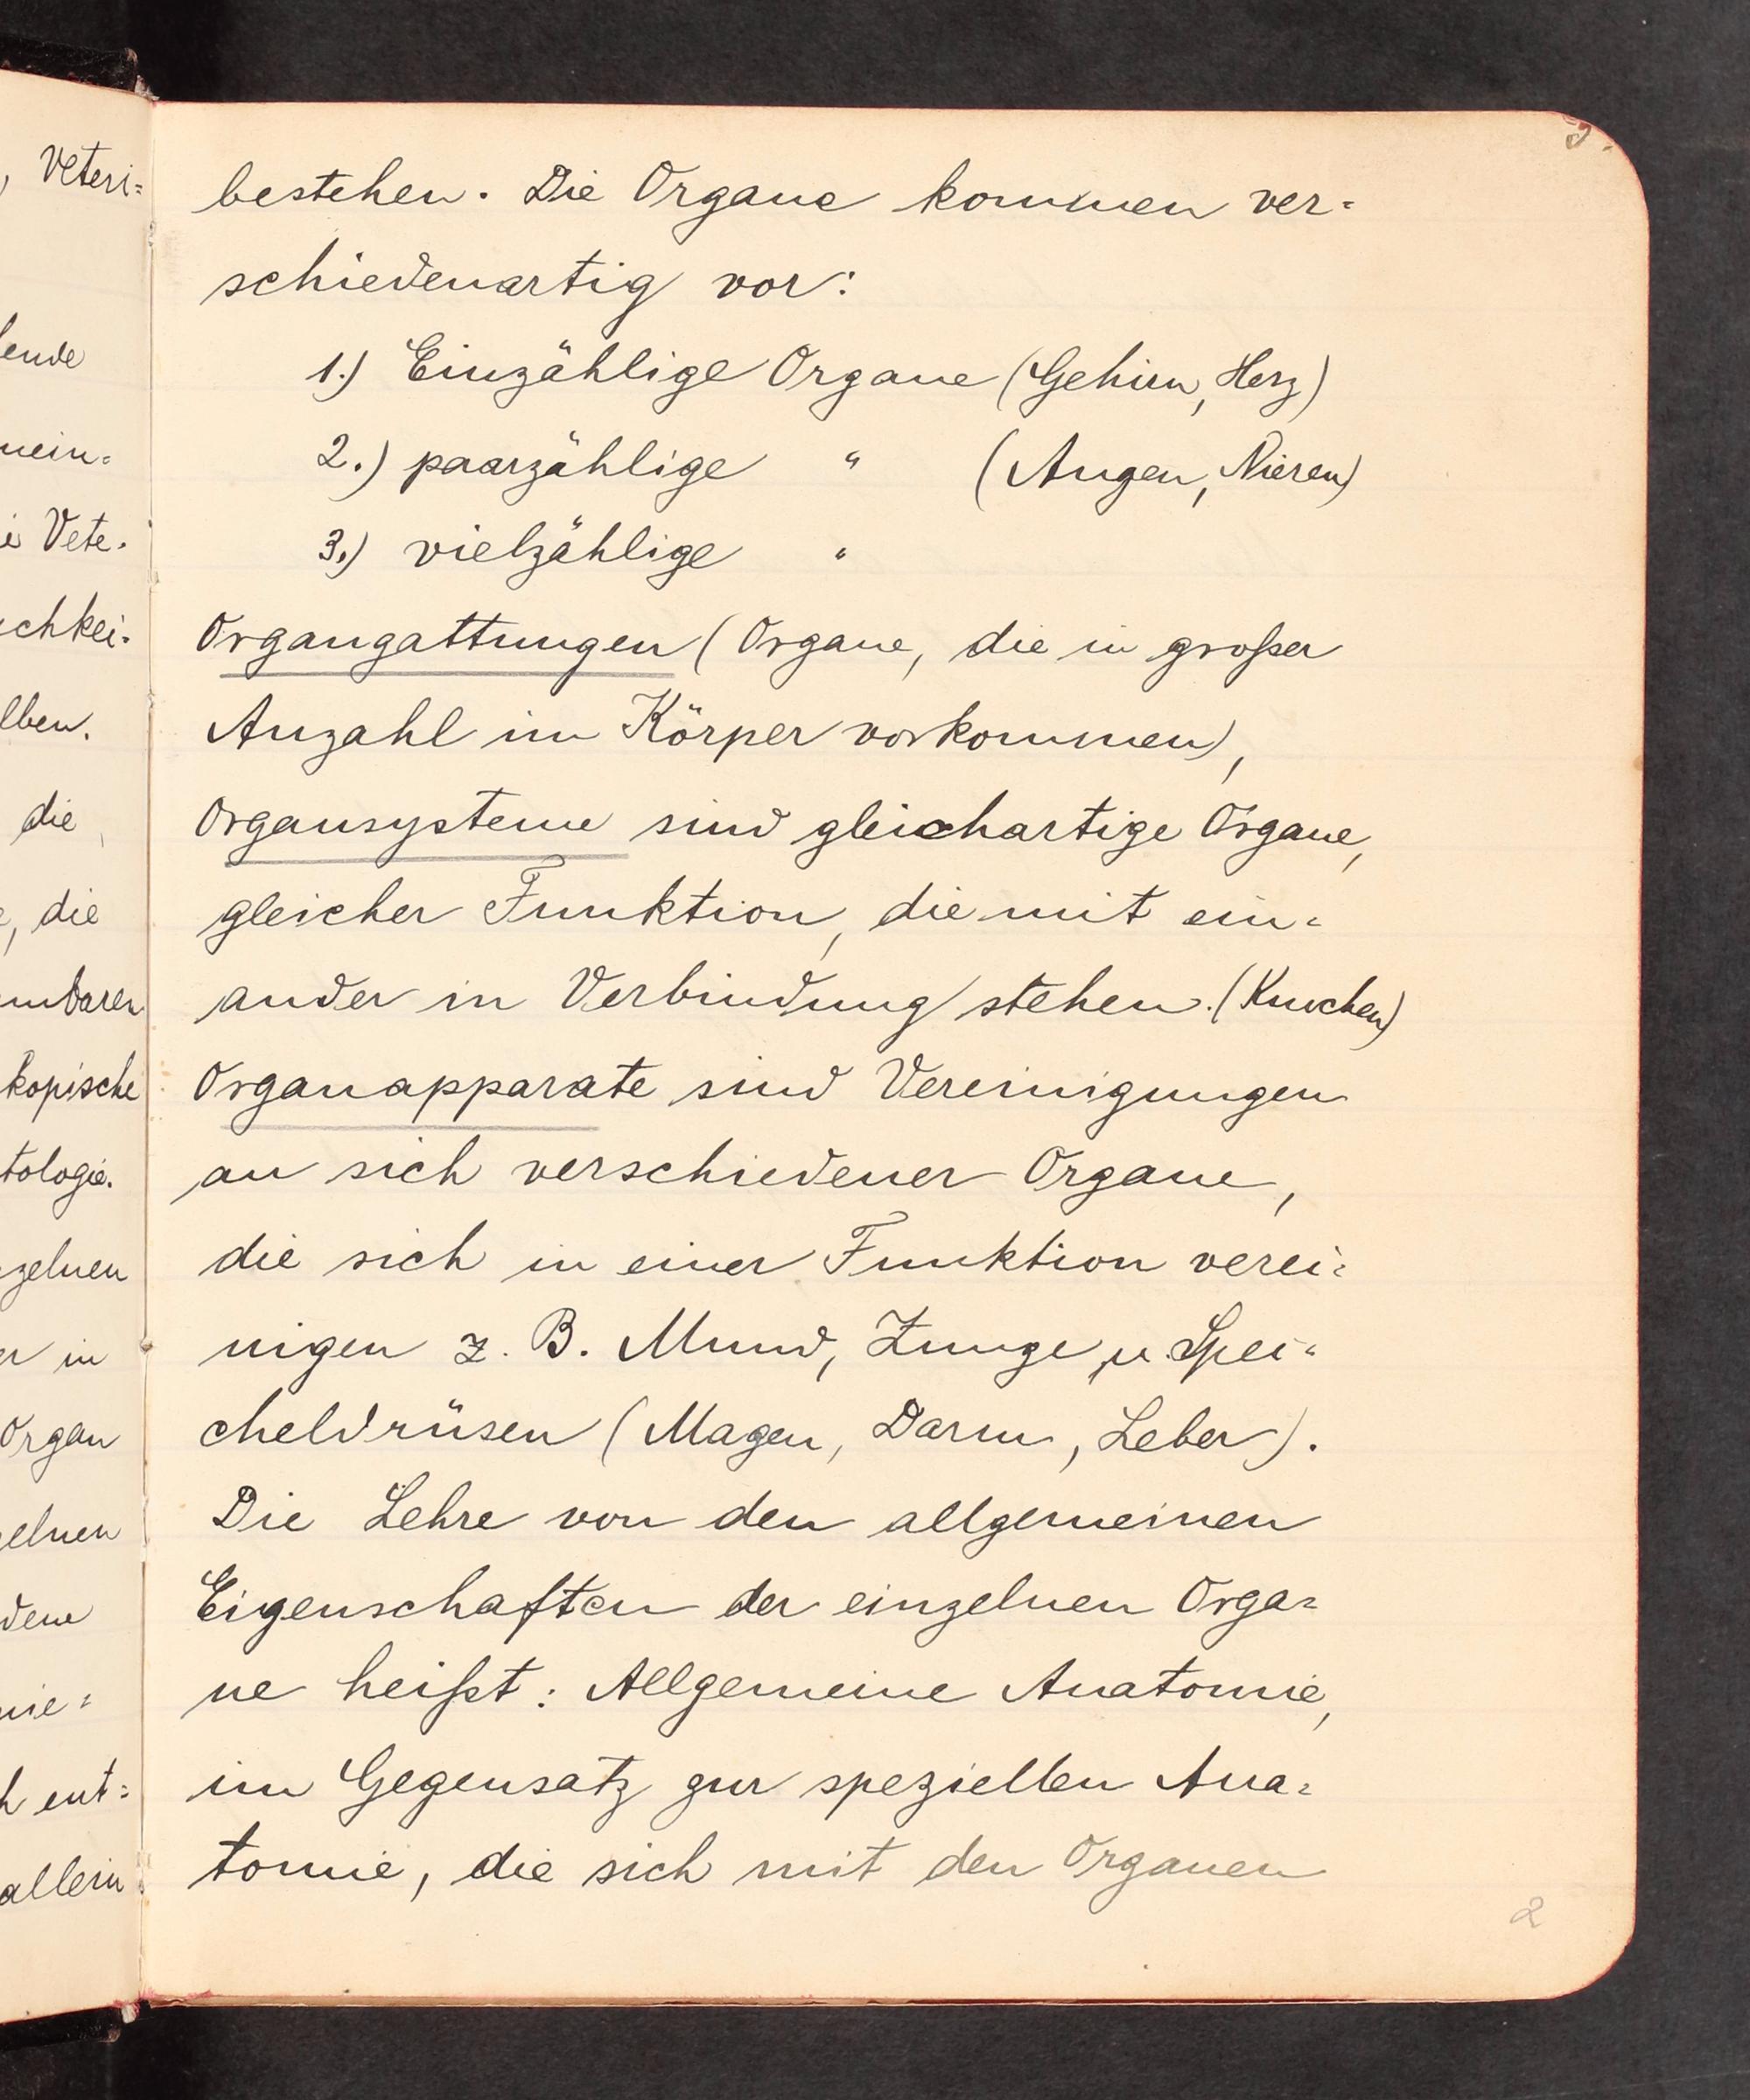 , Veteri=
ende
mein=
Vete=
chkei=
lben.
die
, die
mbaren
kopische
tologie.
zelnen
in
Organ
elnen
dene
nie=
ent=
allein
3.
bestehen. Die Organe kommen ver=
schiedenartig vor:
1.) Einzählige Organe (Gehirn, Herz)
2.) paarzählige " (Augen, Nieren)
3.) vielzählige "
Organgattungen (Organe, die in großer
Anzahl im Körper vorkommen),
Organsysteme sind gleichartige Organe,
gleicher Funktion, die mit ein=
ander in Verbindung stehen. (Knochen)
Organapparate sind Vereinigungen
an sich verschiedener Organe,
die sich in einer Funktion verei=
nigen z. B. Mund, Zunge u. Spei=
cheldrüsen (Magen, Darm, Leber).
Die Lehre von den allgemeinen
Eigenschaften der einzelnen Orga=
ne heißt: Allgemeine Anatomie,
im Gegensatz zur speziellen Ana=
tomie, die sich mit den Organen
2